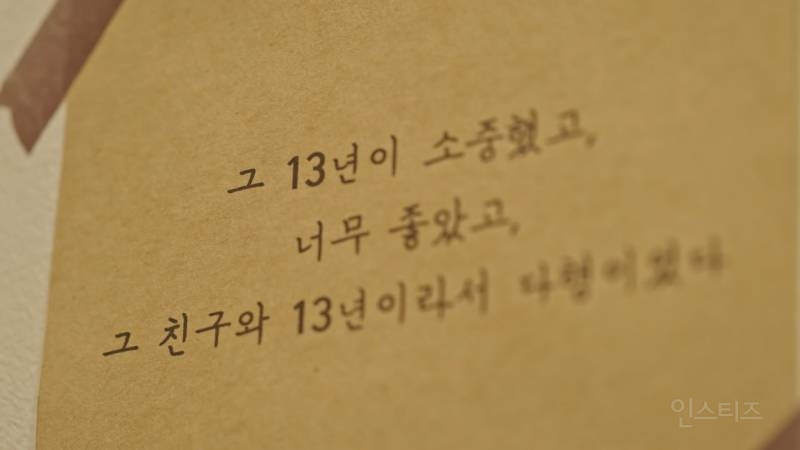 그 13년이 소중했고,
너무 좋았고,
그 친구와 13년이라서 다행이었다
인스티즈